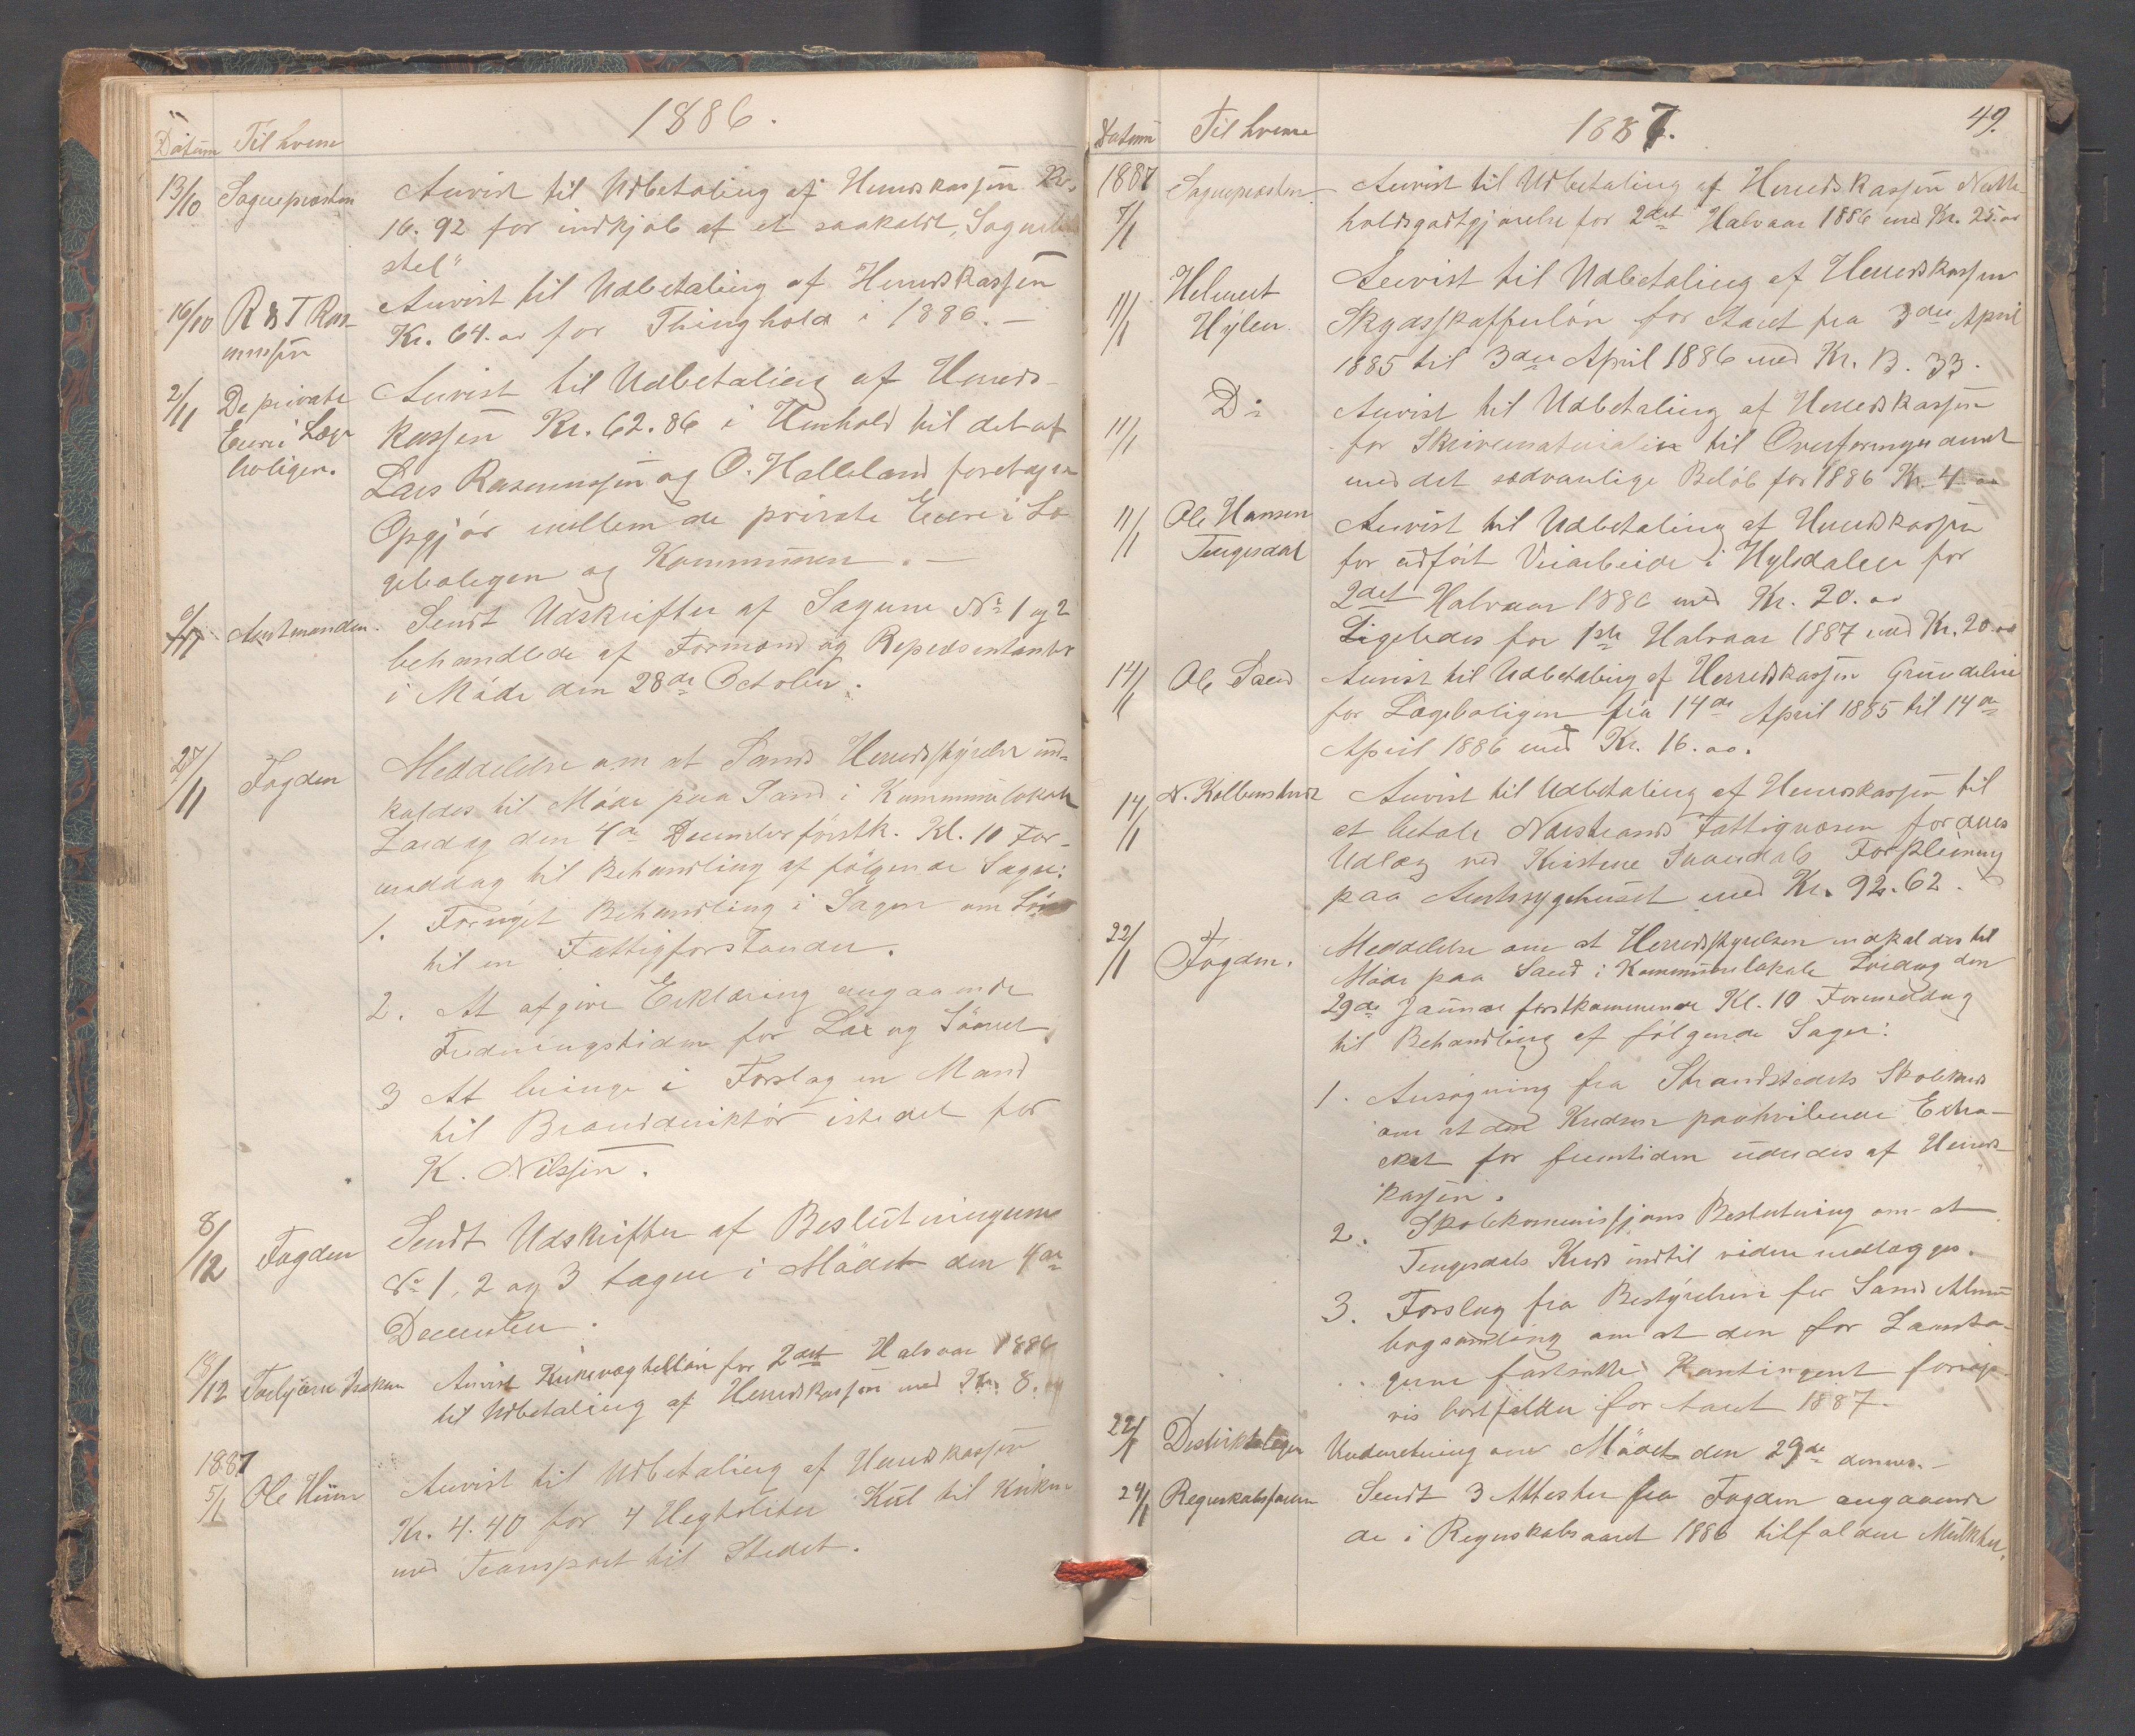 1886.
Datum Til hvem
13/10 Sognepresten Anvist til Udbetaling af Herredskassen Kr.
16.92 for indkjøb af et saakaldt „Sogne
stel"
16/10 R & T Ras- Anvist til Udbetaling af Herredskassen
mussen Kr. 64.00 for Thinghold i 1886. —
2/11 De private Anvist til Udbetaling af Herreds-
Eiere i Læge kassen Kr. 62.86 i Henhold til det af
boligen. Lars Rasmussen og O. Halleland foretagne
Opgjør mellem de private Eiere i Læ
geboligen og Kommunen. —
9/11 Amtmanden. Sendt Udskrifter af Sagerne No 1 og 2
behandlede af Formænd og Repræsentanter
i Møde den 28de October.
27/11 Fogden Meddelelse om at Sands Herredsstyrelse ind-
kaldes til Møde paa Sand i Kommunelokale
Lørdag den 4de December førstk. Kl. 10 For-
middag til Behandling af følgende Sager:
1. Fornyet Behandling i Sagen om Løn
til en Fattigforstander.
2. At afgive Erklæring angaaende
Fredningstiden for Lax og Søørret,
3 At bringe i Forslag en Mand
til Branddirektør istedet for
K. Nilssen.
8/12 Fogden Sendt Udskrifter af Beslutningerne
No 1, 2 og 3 tagne i Mødet den 4de
December.
18/12 Torbjørn Anvist Kirkevægterløn for 2det Halvaar 1886
til Udbetaling af Herredskassen med Kr. 8.
1887
5/1 Ole Anvist til Udbetaling af Herredskassen
Kr. 4.40 for 4 Hegtoliter Kul til Kirken
med Transport til Stedet.
49.
1887.
Datum Til hvem
1887
7/1 Sognepresten. Anvist til Udbetaling af Herredskassen Natte
holdsgodtgjørelse for 2det Halvaar 1886 med Kr. 25.00
11/1 Helmert Anvist til Udbetaling af Herredskassen
Hylen. Skydsskafferløn for Aaret fra 3die April
1885 til 3die April 1886 med Kr. 13.33.
11/1 Do Anvist til Udbetaling af Herredskassen
for Skrivematerialier til Overformynderiet
med det sædvanlige Beløb for 1886 Kr. 4.00
11/1 Ole Hansen Anvist til Udbetaling af Herredskassen
Tengesdal for udført Veiarbeide i Hylsdalen for
2det Halvaar 1886 med Kr. 20.00
Ligeledes for 1ste Halvaar 1887 med Kr. 20.00
14/1 Ole Sand Anvist til Udbetaling af Herredskassen Grundleie
for Lægeboligen fra 14de April 1885 til 14de
April 1886 med Kr. 16.00.
14/1 N. Kolbenstvedt Anvist til Udbetaling af Herredskassen til
at betale Nærstrands Fattigvæsen for dets
Udlæg ved Kristine Forpleining
paa Amtssygehuset med Kr. 92.62.
22/1 Fogden. Meddelelse om at Herredsstyrelsen indkaldes til
Møde paa Sand i Kommunelokale Lørdag den
29de Januar førstkommende Kl. 10 Formiddag
til Behandling af følgende Sager:
1. Ansøgning fra Strandstedets Skolekreds
om at den Kredsen paahvilende Extra-
skat for fremtiden udredes af Herreds-
kassen.
2. Skolekommissjons Beslutning om at
Tengesdals Kreds indtil videre nedlægges.
3. Forslag fra Bestyrelsen for Sands Almue
bogsamling om at den for Laanta-
gerne fastsatte Kontingent forsøgs-
vis bortfalder for Aaret 1887.
22/1 Destriktslægen Underretning om Mødet den 29de dennes. —
24/1 Regnskabsføreren Sendt 3 Attester fra Fogden angaaende
de i Regnskabsaaret 1886 tilfaldne Mulkter.